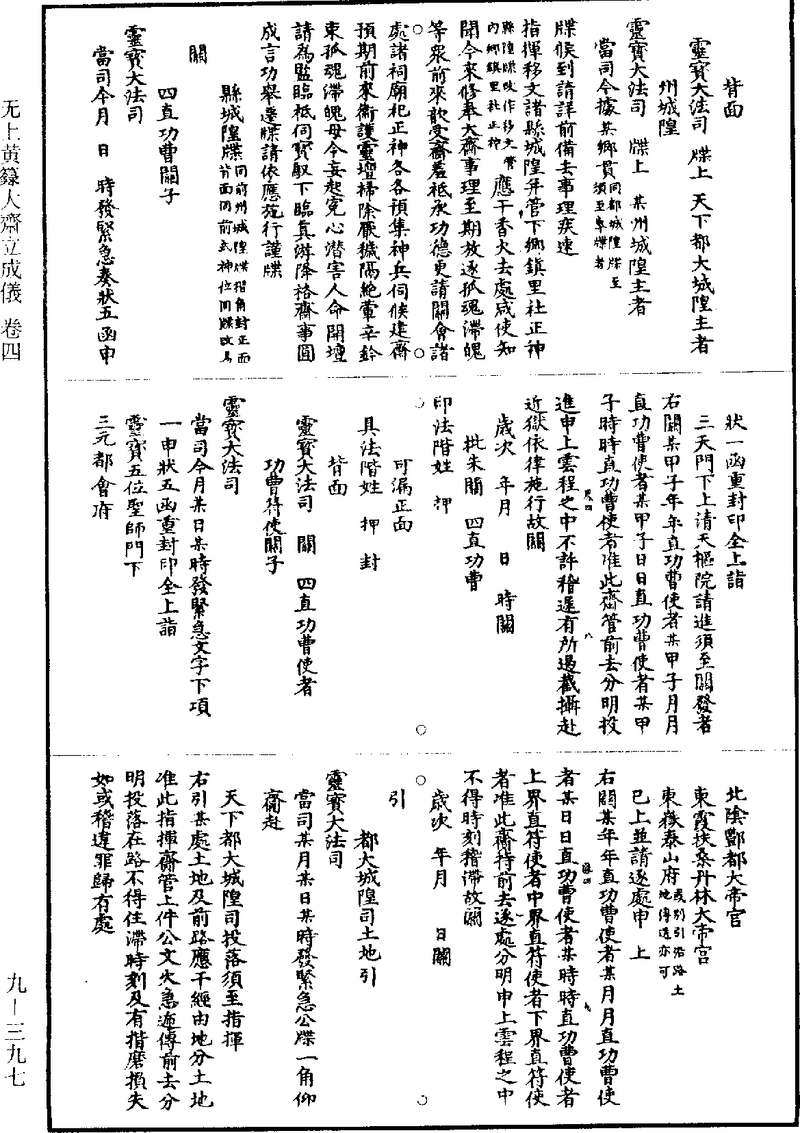 背面
靈寶大法司　牒上　天下都大城隍主者
州城隍
靈寶大法司　牒上　某州城隍主者
當司今據某鄉貫同都城隍牒至須至專牒者
牒候到請詳前備去事理疾速
指揮移文諸縣城隍并管下鄉鎮里社正神
縣隍牒改作移文管內鄉鎮里社正神應干香火去處咸使知
聞今來修奉大齋事理至期放逐孤魂滯魄
等衆前來歆受齋羞祗承功德更請關會諸
處諸祠廟祀正神各各預集神兵伺候建齋
預期前來衛護靈壇掃除厭穢隔絶葷辛鈐
束孤魂滯魄毋令妄起寃心潜害人命開壇
請爲監臨祗伺寶馭下臨真游降格齋事圓
成言功舉遷牒請依應施行謹牒
縣城隍牒同前州城隍牒摺角封正面背面同前式神位同牒改易
關
四直功曹關子
靈寶大法司
當司今月　日　時發緊急奏狀五函申
狀一函重封印全上詣
三天門下上清天樞院請進須至關發者
右關某甲子年年直功曹使者某甲子月月
直功曹使者某甲子日日直功曹使者某甲
子時時直功曹使者准此齋管前去分明投
進申上雲程之中不許稽遲有所過截攝赴
近獄依律施行故關
歲次　年月　日　時關
批朱關　四直功曹
印法階姓　押
可漏正面
具法階姓　押　封
背面
靈寶大法司　關　四直功曹使者
功曹符使關子
靈寶大法司
當司今月某日某時發緊急文字下項
一申狀五函重封印全上詣
靈寶五位聖師門下
三元都會府
北陰酆都大帝宫
東霞扶桑丹林大帝宫
東嶽泰山府或别引沿路土地傳送亦可
已上並請逐處申　上
右關某年年直功曹使者某月月直功曹使
者某日日直功曹使者某時時直功曹使者
上界直符使者中界直符使者下界直符使
者准此齋持前去逐處分明申上雲程之中
不得時刻稽滯故關
歲次　年月　日關
引
都大城隍司土地引
靈寶大法司
當司某月某日某時發緊急公牒一角仰
齋赴
天下都大城隍司投落須至指揮
右引某處土地及前路應干經由地分土地
准此指揮齋管上件公文火急遞傳前去分
明投落在路不得住滯時刻及有揩磨損失
如或稽違罪歸有處
无上黄籙大齋立成儀　卷四
九—三九七